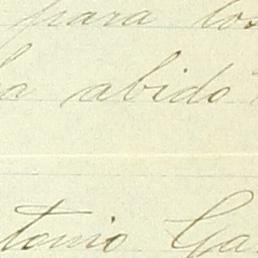 para los
a abido
tonio Ga